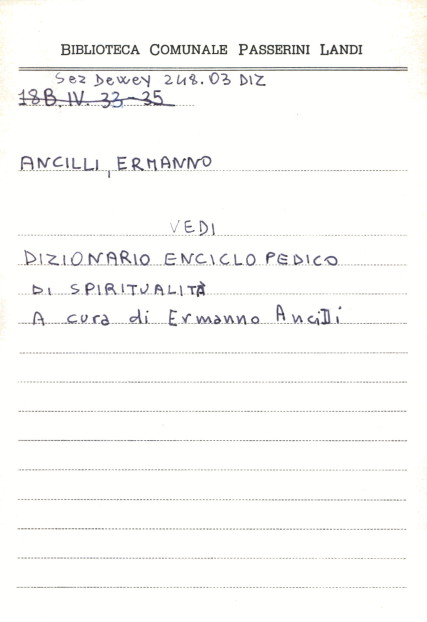 BIBLIOTECA COMUNALE PASSERINI LANDI
Sez Dewey 248.03 DIZ
18B. IV. 33-35
ANCILLI, ERMANNO
VEDI
DIZIONARIO ENCICLOPEDICO
DI SPIRITUALITÀ
A cura di Ermanno Ancilli